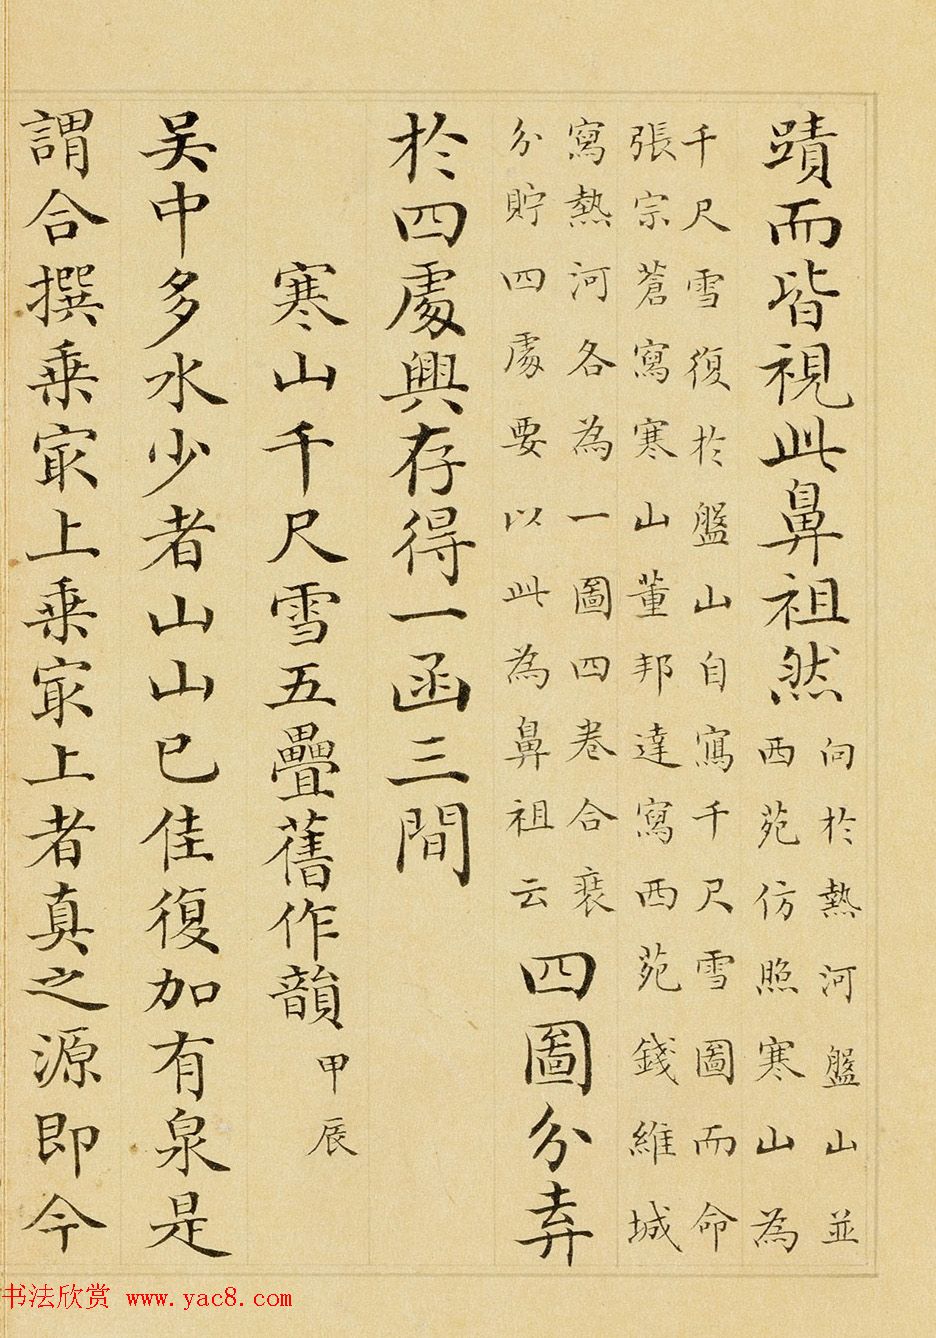 蹟而皆視此鼻祖然
向於熱河盤山並
西苑仿照寒山為
千尺雪復於盤山自寫千尺雪圖而命
張宗蒼寫寒山董邦達寫西苑錢維城
寫熱河各為一圖四卷合袠
分貯四處要以此為鼻祖云
四圖分弆
於四處興存得一函三間
寒山千尺雪五疊舊作韻甲辰
吴中多水少者山山已佳復加有泉是
謂合撰乘冣上乘冣上者真之源即今
书法欣赏 www.yac8.com